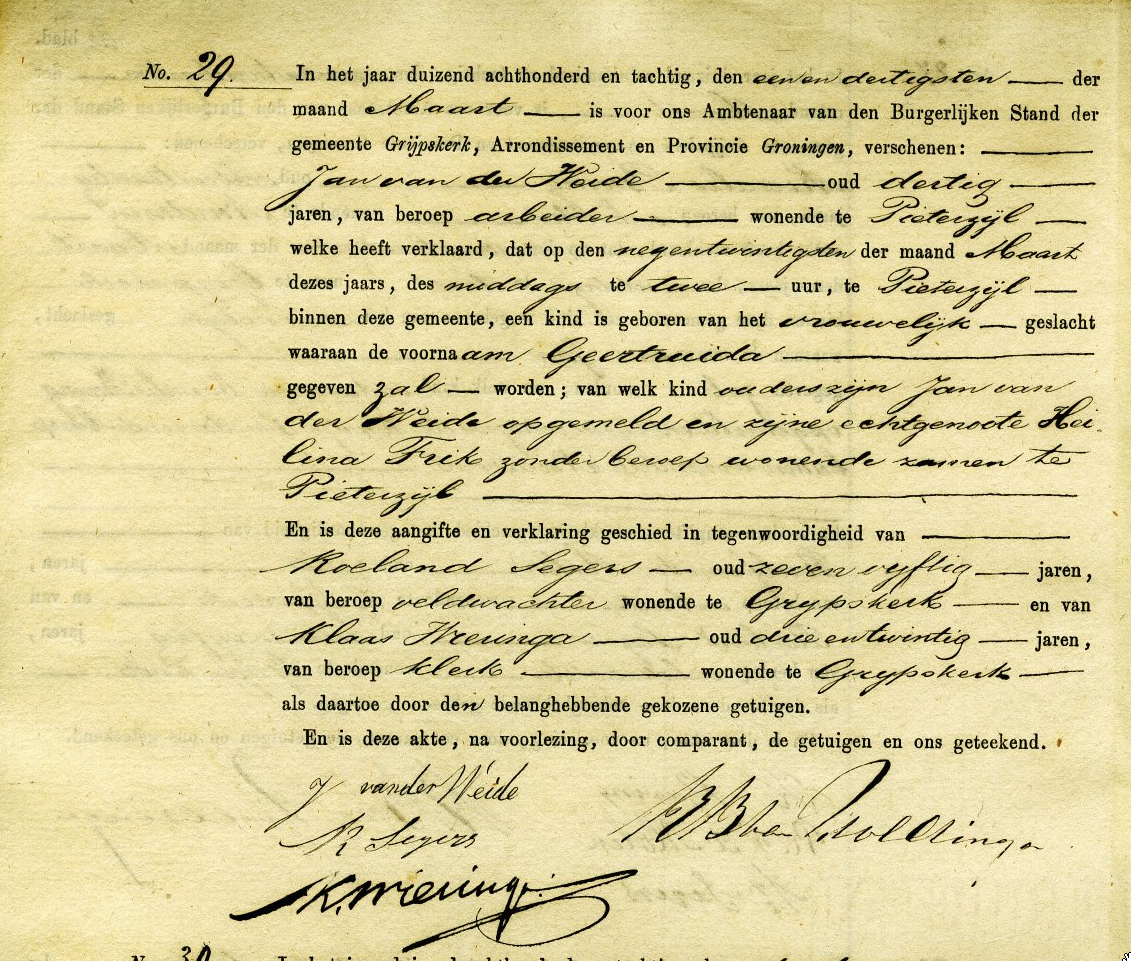 blad.
No. 29. In het jaar duizend achthonderd en tachtig, den een en dertigsten der
maand Maart is voor ons Ambtenaar van den Burgerlijken Stand der
gemeente Grijpskerk, Arrondissement en Provincie Groningen, verschenen:
Jan van der Weide oud dertig
jaren, van beroep arbeider wonende te Pieterzijl
welke heeft verklaard, dat op den negentwintigsten der maand Maart
dezes jaars, des middags te twee uur, te Pieterzijl
binnen deze gemeente, een kind is geboren van het vrouwelijk geslacht
waaraan de voornaam Geertruida
gegeven zal worden; van welk kind ouders zijn Jan van
der Weide opgemeld en zijne echtgenoote Hei-
lina Frik zonder beroep wonende zamen te
Pieterzijl
En is deze aangifte en verklaring geschied in tegenwoordigheid van
Roeland Segers oud zeven vyftig jaren,
van beroep veldwachter wonende te Grypskerk en van
Klaas Wieringa oud drie entwintig jaren,
van beroep klerk wonende te Grypskerk
als daartoe door den belanghebbende gekozene getuigen.
En is deze akte, na voorlezing, door comparant, de getuigen en ons geteekend.
J vander Weide
R Segers
K. Wieringa
No. 30